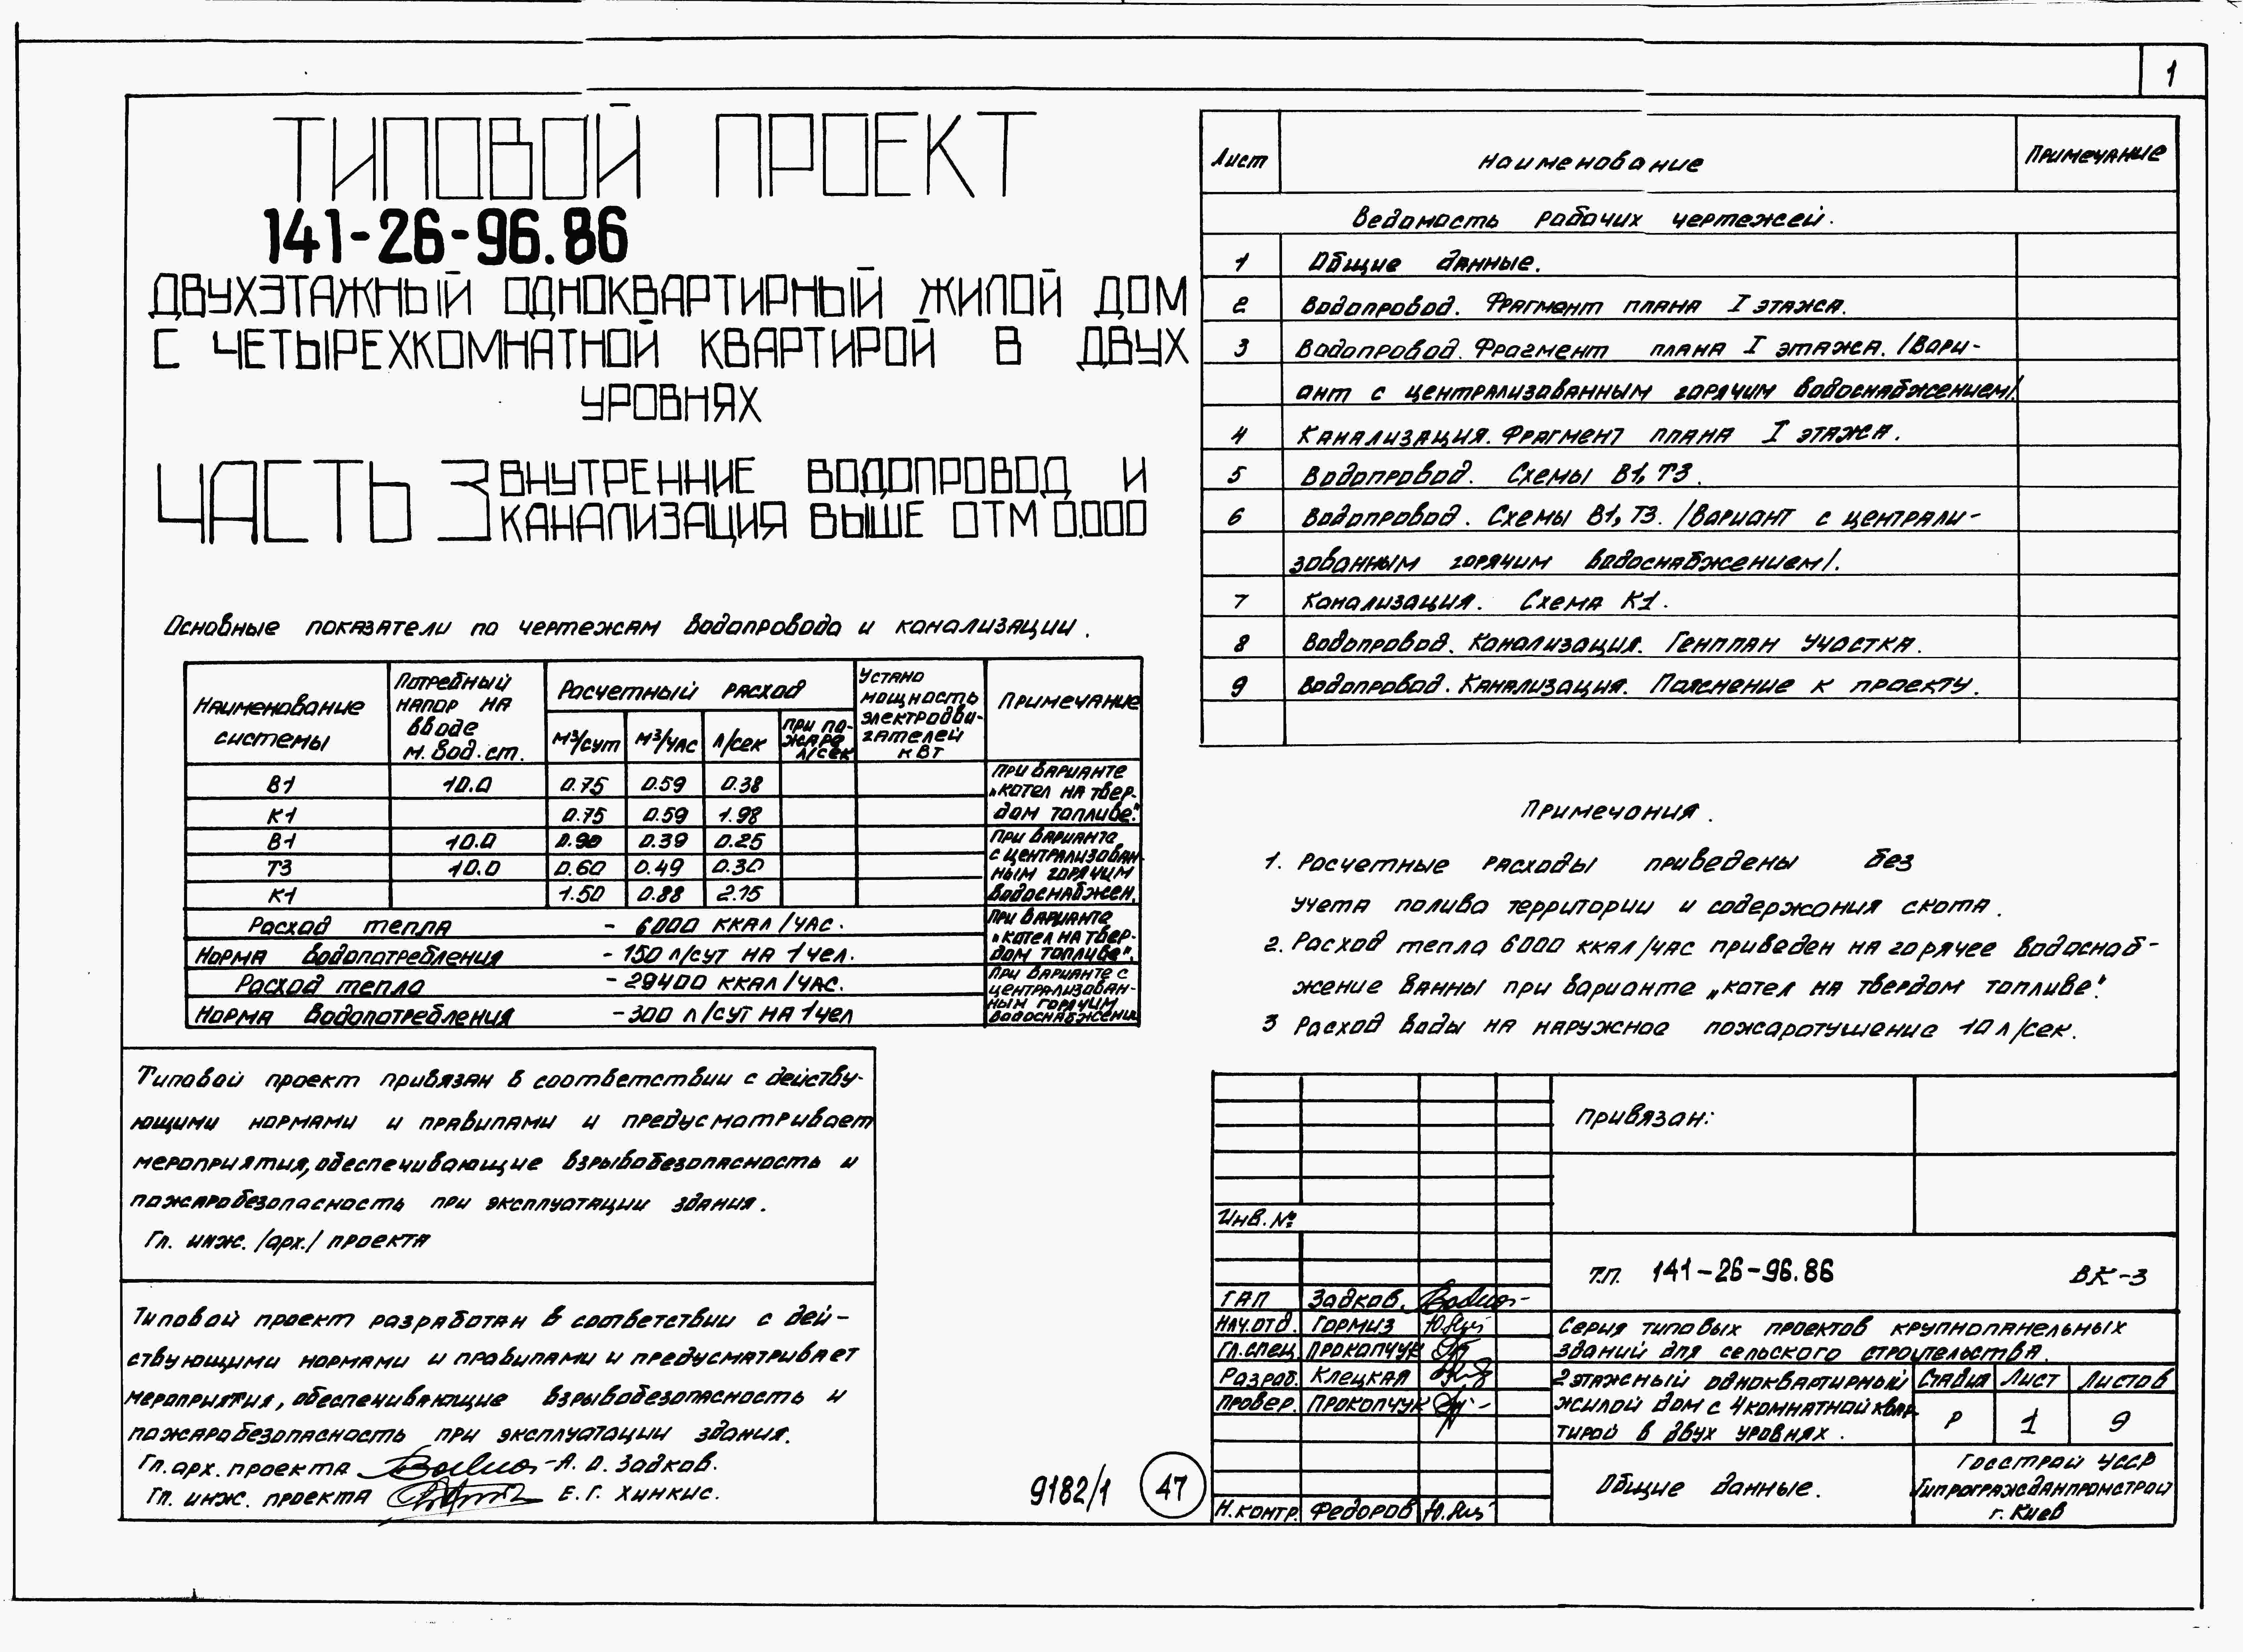 1
ТИПОВОЙ ПРОЕКТ
141-26-96.86
ДВУХЭТАЖНЫЙ ОДНОКВАРТИРНЫЙ ЖИЛОЙ ДОМ
С ЧЕТЫРЕХКОМНАТНОЙ КВАРТИРОЙ В ДВУХ
УРОВНЯХ
ЧАСТЬ 3 ВНУТРЕННИЕ ВОДОПРОВОД И
КАНАЛИЗАЦИЯ ВЫШЕ ОТМ 0.000
Основные показатели по чертежам водопровода и канализации.
Наименование системы
Потребный напор на вводе м. вод. ст.
Расчетный расход
М³/сут М³/час Л/сек При пожаре л/сек
Устано мощность электродвигателей кВт
Примечание
В1 10.0 0.75 0.59 0.38
К1 0.75 0.59 1.98
При варианте
„Котел на твер-
дом топливе".
В1 10.0 0.90 0.39 0.25
Т3 10.0 0.60 0.49 0.30
К1 1.50 0.88 2.15
При варианте
с централизован-
ным горячим
водоснабжен.
Расход тепла - 6000 ккал/час.
Норма водопотребления - 150 л/сут на 1 чел.
При варианте
„котел на твер-
дом топливе".
Расход тепла - 29400 ккал/час.
Норма водопотребления - 300 л/сут на 1 чел
При варианте с
централизован-
ным горячим
водоснабжении
Типовой проект привязан в соответствии с действу-
ющими нормами и правилами и предусматривает
мероприятия, обеспечивающие взрывобезопасность и
пожаробезопасность при эксплуатации здания.
Гл. инж. /арх./ проекта
Типовой проект разработан в соответствии с дей-
ствующими нормами и правилами и предусматривает
мероприятия, обеспечивающие взрывобезопасность и
пожаробезопасность при эксплуатации здания.
Гл. арх. проекта А. О. Задков.
Гл. инж. проекта Е. Г. Хинкис.
9182/1 47
Лист Наименование Примечание
Ведомость рабочих чертежей.
1 Общие данные.
2 Водопровод. Фрагмент плана I этажа.
3 Водопровод. Фрагмент плана I этажа. /Вари-
ант с централизованным горячим водоснабжением/.
4 Канализация. Фрагмент плана I этажа.
5 Водопровод. Схемы В1, Т3.
6 Водопровод. Схемы В1, Т3. /Вариант с централи-
зованным горячим водоснабжением/.
7 Канализация. Схема К1.
8 Водопровод. Канализация. Генплан участка.
9 Водопровод. Канализация. Пояснение к проекту.
Примечания.
1. Расчетные расходы приведены без
учета полива территории и содержания скота.
2. Расход тепла 6000 ккал/час приведен на горячее водоснаб-
жение ванны при варианте „котел на твердом топливе".
3 Расход воды на наружное пожаротушение 10 л/сек.
Привязан:
Инв. №
Т.П. 141-26-96.86 ВК-3
ГАП Задков.
Нач. отд. Гормиз
Гл. спец. Прокопчук
Разраб. Клецкая
Провер. Прокопчук
Н. контр. Федоров
Серия типовых проектов крупнопанельных
зданий для сельского строительства.
2 этажный одноквартирный
жилой дом с 4 комнатной квар-
тирой в двух уровнях.
Стадия Лист Листов
Р 1 9
Общие данные.
Госстрой УССР
Гипрогражданпромстрой
г. Киев